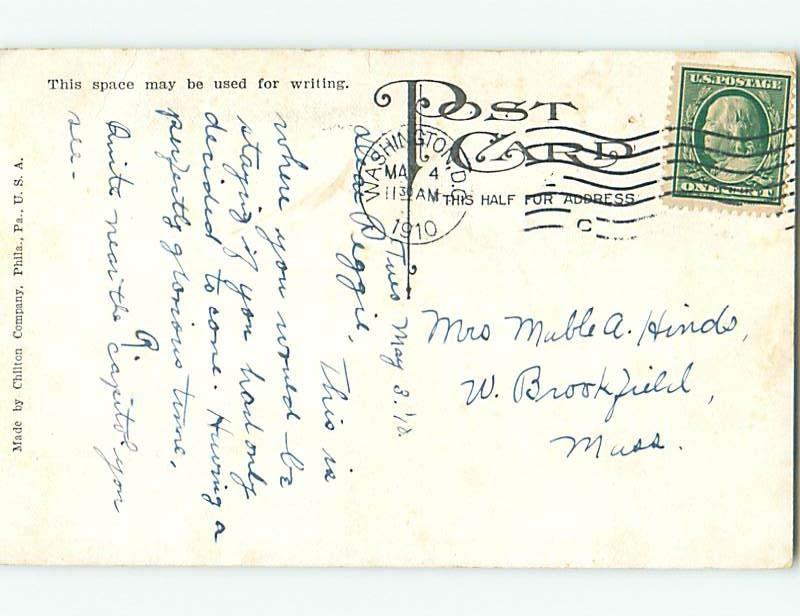 This space may be used for writing.
POST CARD
THIS HALF FOR ADDRESS
U.S. POSTAGE
ONE
WASHINGTON, D.C.
MAY 4
11 30 AM
1910
C
Made by Chilton Company, Phila., Pa., U. S. A.
Tues May 3. '10.
Dear Peggie, This is
where you would be
staying if you had only
decided to come. Having a
perfectly glorious time.
Quite near the capitol you
see.
Mrs Mable A. Hinds,
W. Brookfield,
Mass.